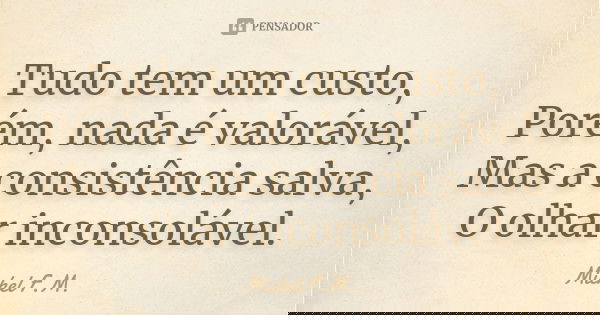 PENSADOR
Tudo tem um custo,
Porém, nada é valorável,
Mas a consistência salva,
O olhar inconsolável.
Mickel F. M.